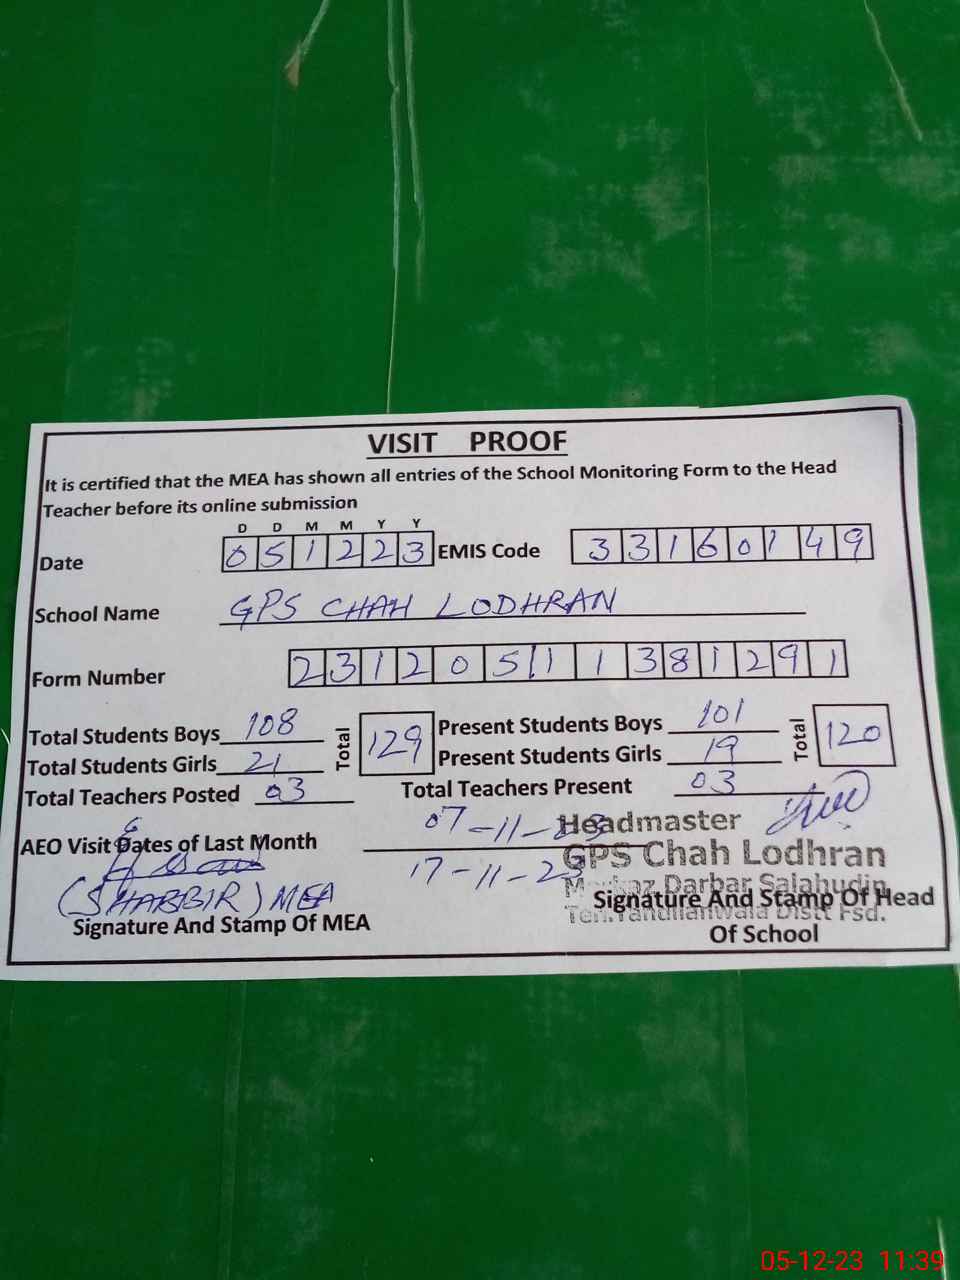 VISIT PROOF
It is certified that the MEA has shown all entries of the School Monitoring Form to the Head
Teacher before its online submission
D D M M Y Y
Date 0 5 1 2 2 3 EMIS Code 3 3 1 6 0 1 4 9
School Name GPS CHAH LODHRAN
Form Number 2 3 1 2 0 5 1 1 1 3 8 1 2 9 1
Total Students Boys 108 Total 129 Present Students Boys 101 Total 120
Total Students Girls 21 Present Students Girls 19
Total Teachers Posted 03 Total Teachers Present 03
AEO Visit Dates of Last Month 07-11-23
17-11-23
Headmaster
GPS Chah Lodhran
Markaz Darbar Salahudin
Teh. Tandlianwala Distt Fsd.
(SHABBIR) MEA
Signature And Stamp Of MEA
Signature And Stamp Of Head
Of School
05-12-23 11:39